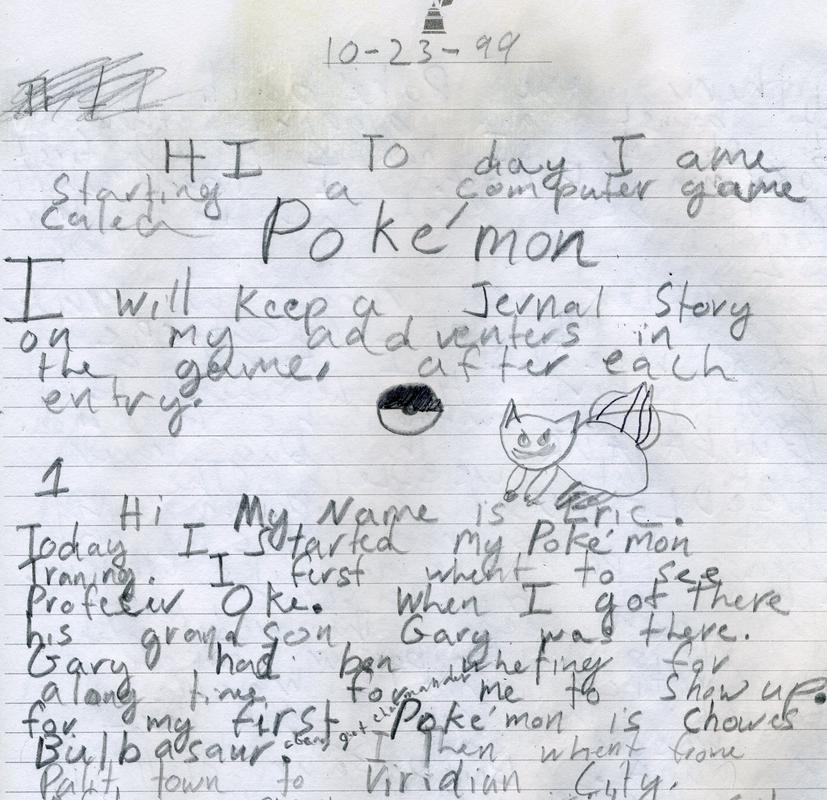 10-23-99
HI To day I ame
Starting a computer game
Caled Poké'mon
I will keep a Jernal Story
on my addventers in
the game. after each
entry.
1
Hi My Name is Eric.
Today I Started my Poké'mon
Traning. I first whent to see
Profeser Oke. When I got There
his grandson Gary was there.
Gary had ben whefing for
along time for me to Show up.
for my first Poké'mon is chowes
Bulbasaur. I Then whent frome
Palit town to Viridian City.